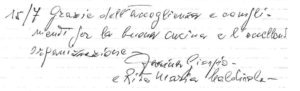 15/7 Grazie dell'accoglienza e compli-
menti per la buona cucina e l'eccellente
organizzazione
Giorgio
e Rita Maria